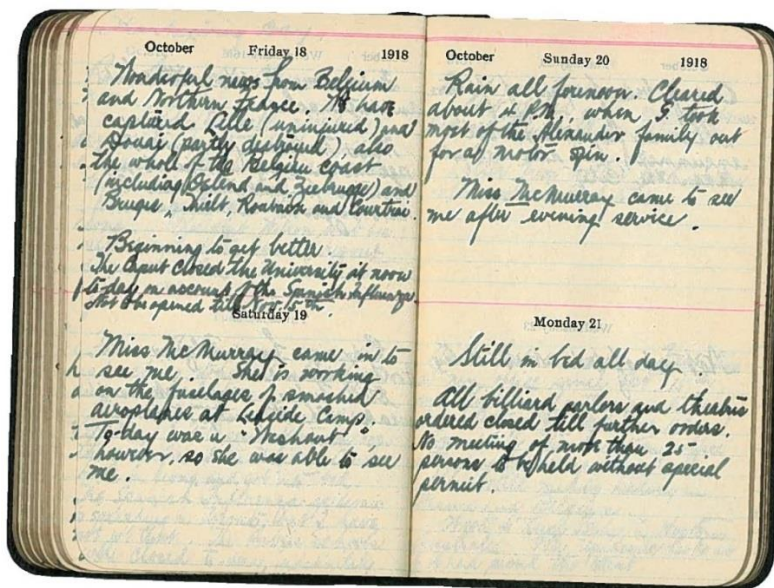 October Friday 18 1918
Wonderful news from Belgium
and Northern France. We have
captured Lille (uninjured) and
Douai (partly destroyed), also
the whole of the Belgian coast
(including Ostend and Zeebrugge) and
Bruges, Thielt, Roubaix and Courtrai.
Beginning to get better.
The Caput closed the University at noon
to-day on account of the Spanish Influenza.
Not to be opened till Nov. 15th.
Saturday 19
Miss McMurray came in to
see me. She is working
on the fuselages of smashed
aeroplanes at Leaside Camp.
To-day was a "Washout",
however, so she was able to see
me.
October Sunday 20 1918
Rain all forenoon. Cleared
about 4 P.M., when G. took
most of the Alexander family out
for a motor spin.
Miss McMurray came to see
me after evening service.
Monday 21
Still in bed all day
All billiard parlors and theatres
ordered closed till further orders.
No meeting of more than 25
persons to be held without special
permit.